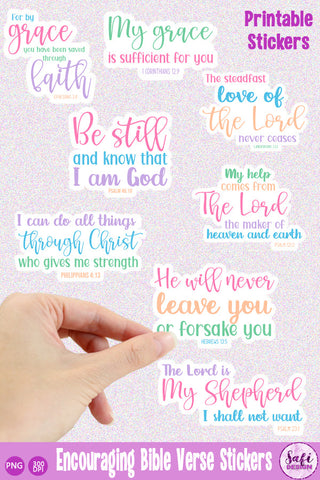 Printable
Stickers
For by
grace
you have been saved
through
faith
EPHESIANS 2:8
My grace
is sufficient for you
2 CORINTHIANS 12:9
The steadfast
love of
the Lord
never ceases
LAMENTATIONS 3:22
Be still
and know that
I am God
PSALM 46:10
My help
comes from
The Lord
the maker of
heaven and earth
PSALM 121:2
I can do all things
through Christ
who gives me strength
PHILIPPIANS 4:13
He will never
leave you
or forsake you
HEBREWS 13:5
The Lord is
My Shepherd
I shall not want
PSALM 23:1
PNG
300
DPI
Encouraging Bible Verse Stickers
Safi
DESIGN